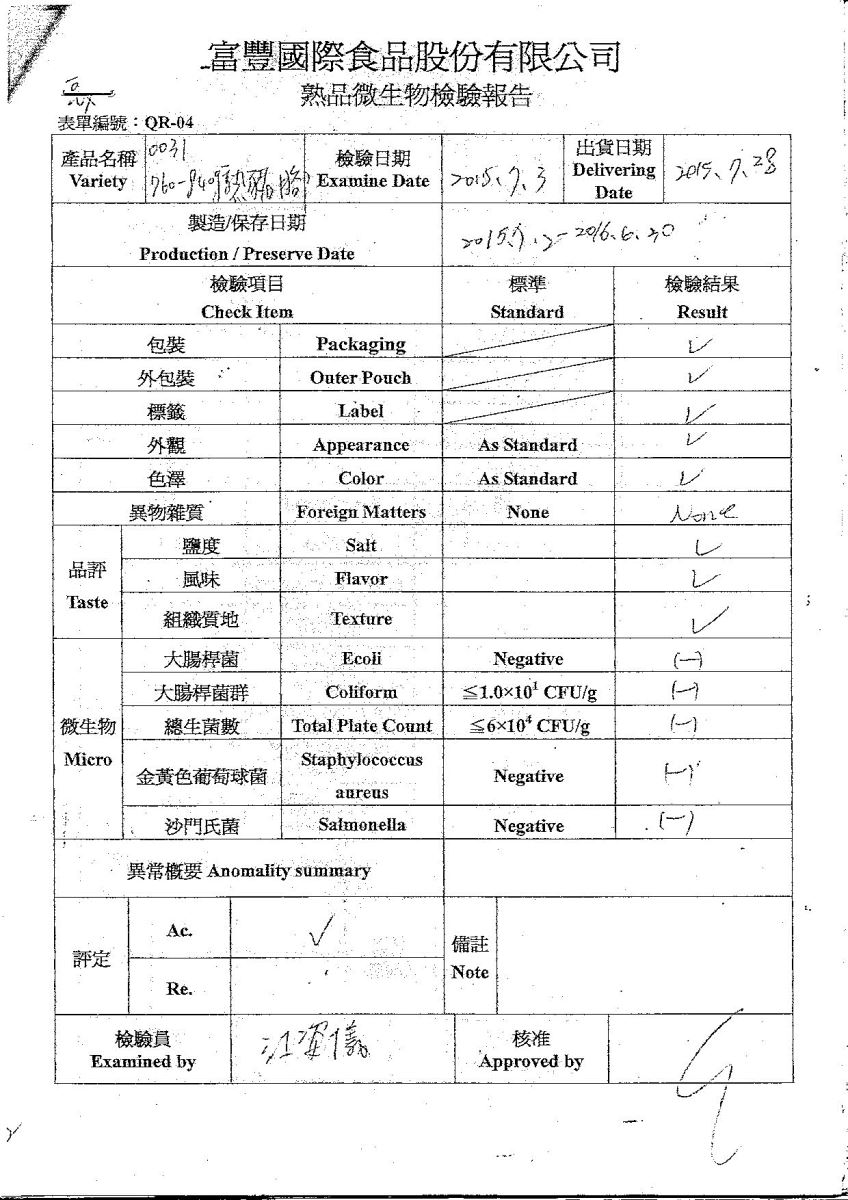 富豐國際食品股份有限公司
熟品微生物檢驗報告
表單編號：QR-04
產品名稱 Variety 0031 760-840g 檢驗日期 Examine Date 2015、7、3 出貨日期 Delivering Date 2015、7、28
製造/保存日期 Production / Preserve Date 2015.7.2-2016.6.30
檢驗項目 標準 檢驗結果
Check Item Standard Result
包裝 Packaging ✓
外包裝 Outer Pouch ✓
標籤 Label ✓
外觀 Appearance As Standard ✓
色澤 Color As Standard ✓
異物雜質 Foreign Matters None None
品評 Taste
鹽度 Salt ✓
風味 Flavor ✓
組織質地 Texture ✓
微生物 Micro
大腸桿菌 Ecoli Negative (一)
大腸桿菌群 Coliform ≦1.0×10¹ CFU/g (一)
總生菌數 Total Plate Count ≦6×10⁴ CFU/g (一)
金黃色葡萄球菌 Staphylococcus aureus Negative (一)
沙門氏菌 Salmonella Negative (一)
異常概要 Anomality summary
評定 Ac. ✓ 備註 Note
Re.
檢驗員 核准
Examined by Approved by